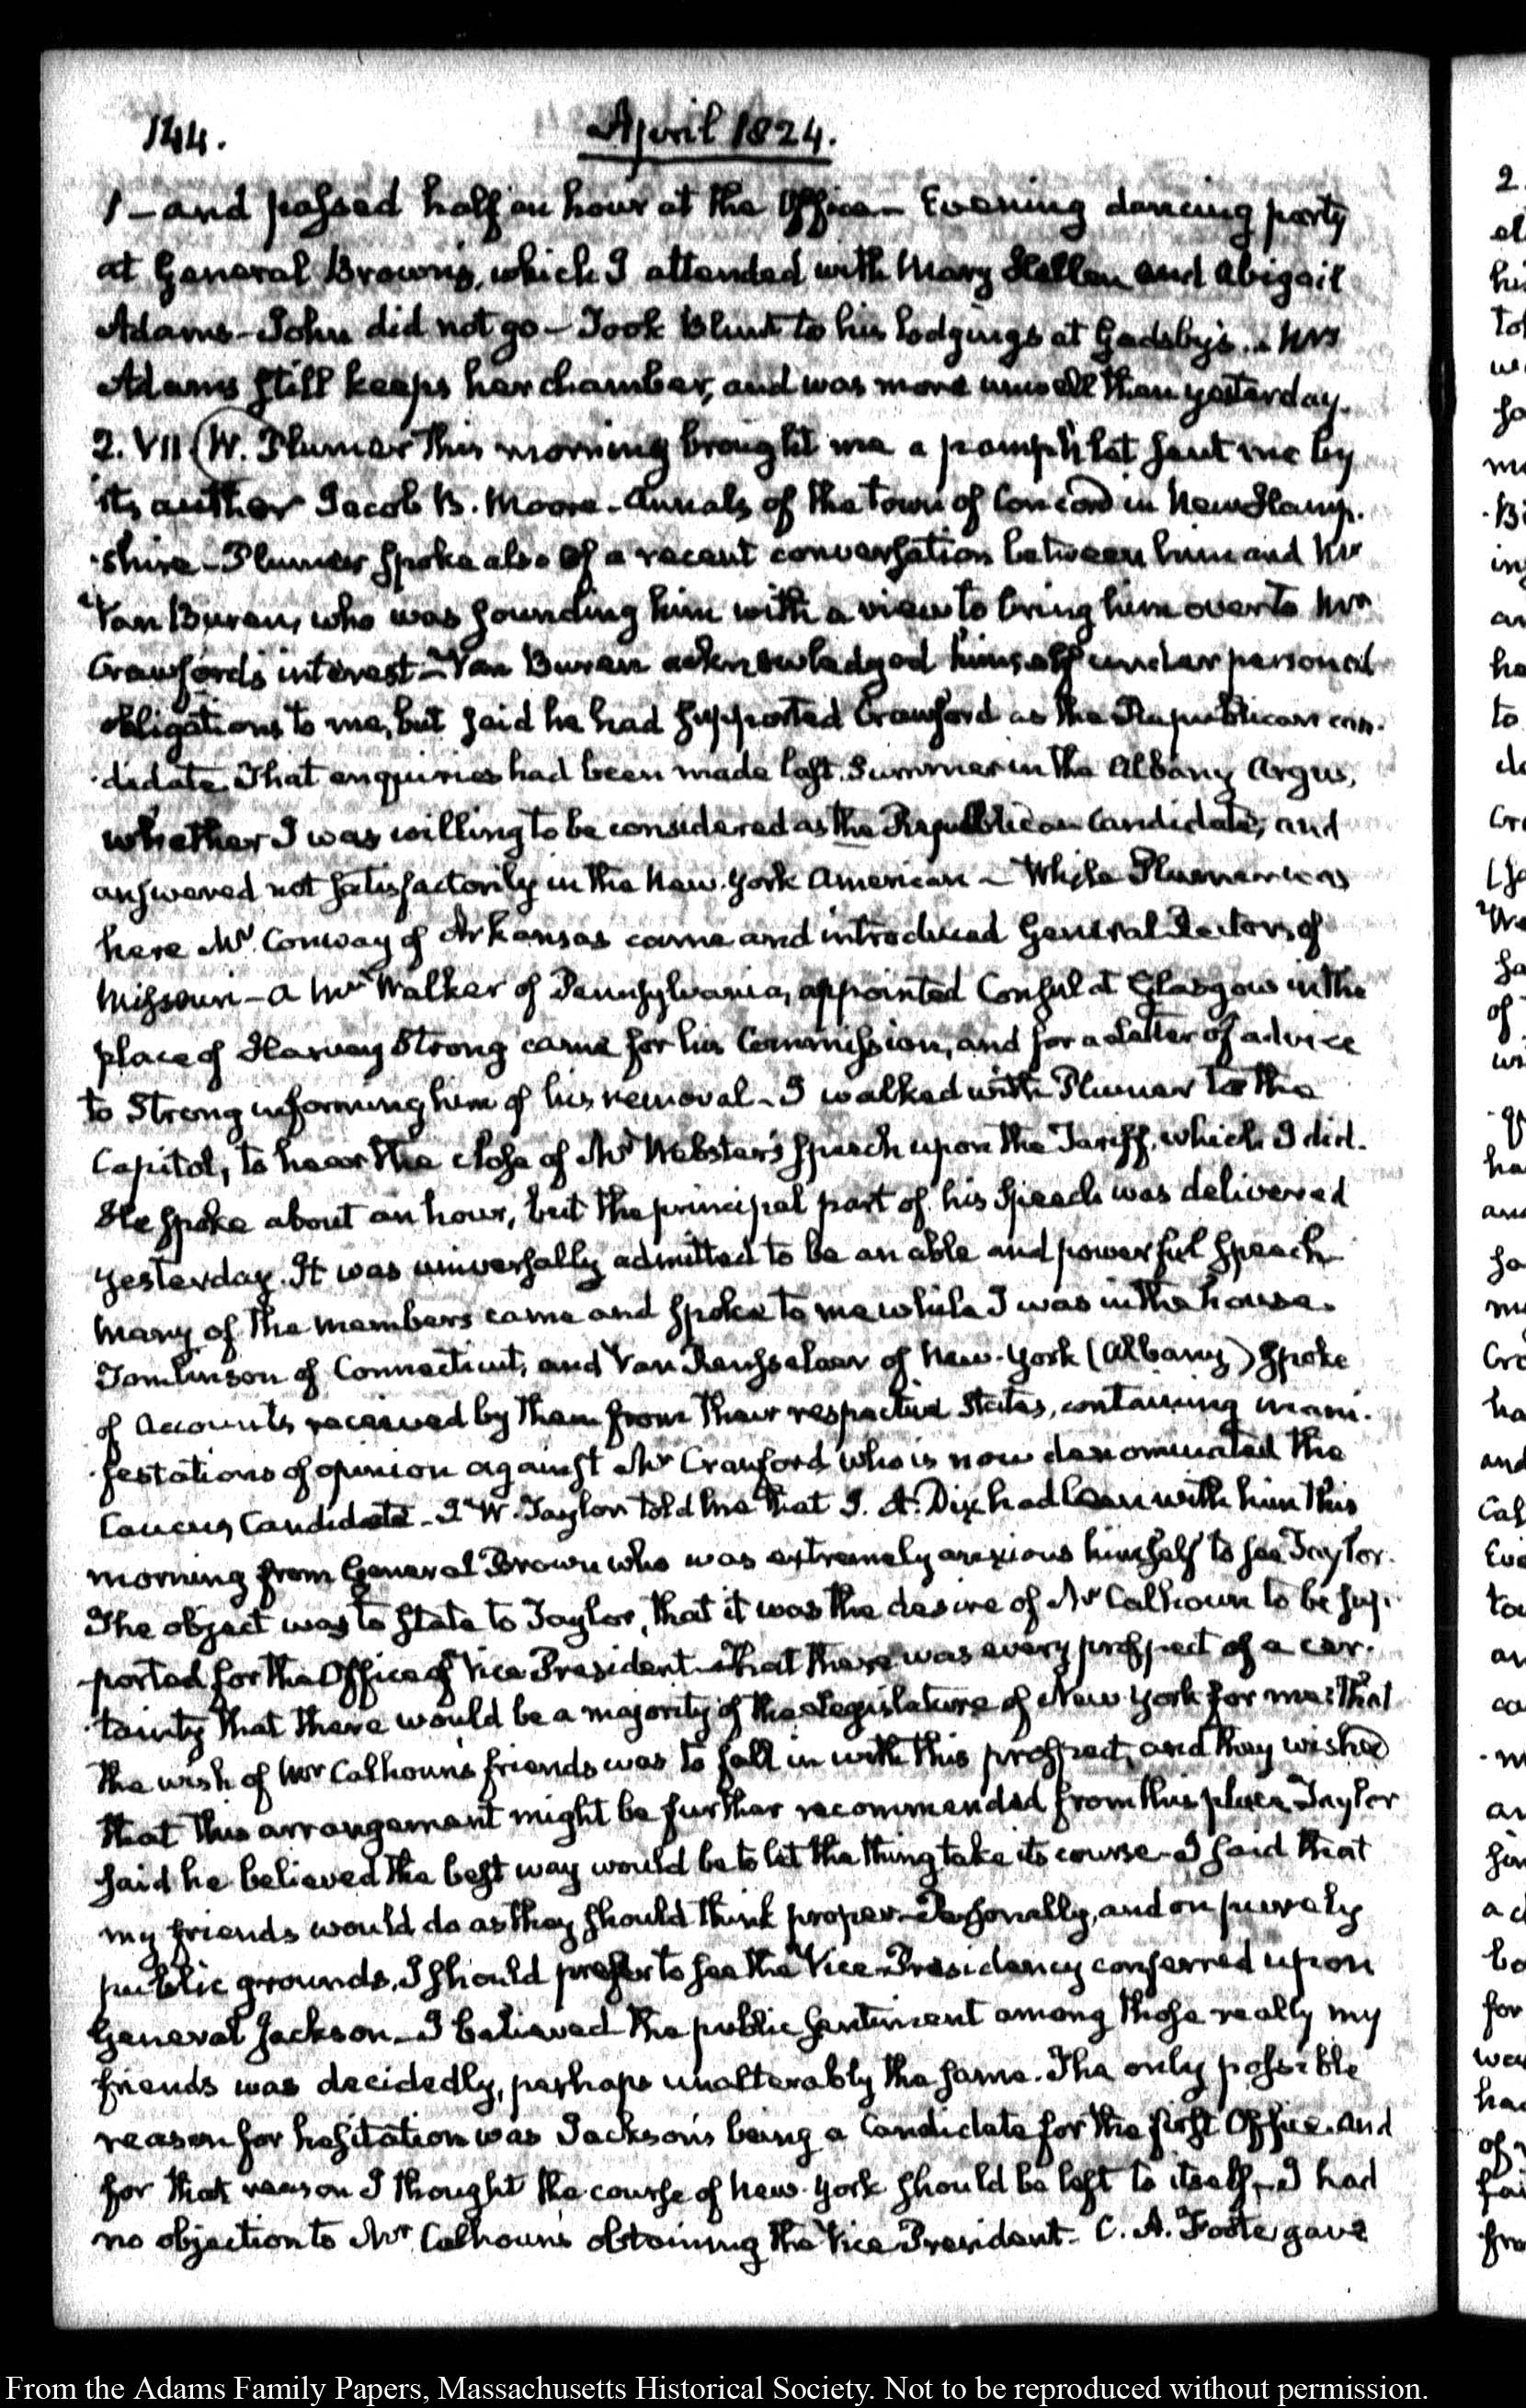 144.
April 1824.
1 – and passed half an hour at the Office – Evening dancing party
at General Brown's, which I attended with Mary Hellen and Abigail
Adams – John did not go – Took Blunt to his lodgings at Gadsby's. Mrs
Adams still keeps her chamber, and was more unwell than yesterday.
2. VII (W. Plumer this morning brought me a pamphlet sent me by
its author Jacob B. Moore – Annals of the Town of Concord in New Hamp-
-shire – Plumer spoke also of a recent conversation between him and Mr
Van Buren, who was sounding him with a view to bring him over to Mr
Crawford's interest – Van Buren acknowledged himself under personal
obligations to me, but said he had supported Crawford as the Republican can-
-didate. That enquiries had been made last Summer in the Albany Argus,
whether I was willing to be considered as the Republican Candidate, and
answered not satisfactorily in the New-York American – While Plumer was
here Mr Conway of Arkansas came and introduced General Rector, of
Missouri – A Mr Walker of Pennsylvania, appointed Consul at Glasgow in the
place of Harvey Strong came for his Commission, and for a Letter of advice
to Strong informing him of his removal – I walked with Plumer to the
Capitol, to hear the close of Mr Webster's speech upon the Tariff, which I did.
He spoke about an hour, but the principal part of his Speech was delivered
yesterday. It was universally admitted to be an able and powerful speech
Many of the members came and spoke to me while I was in the house.
Tomlinson of Connecticut, and Van Rensselaer of New-York (Albany) spoke
of Accounts received by them from their respective States, containing mani-
-festations of opinion against Mr Crawford who is now denominated the
Caucus Candidate – J. W. Taylor told me that J. A. Dix had been with him this
morning from General Brown who was extremely anxious himself to see Taylor.
The object was to state to Taylor, that it was the desire of Mr Calhoun to be sup-
-ported for the Office of Vice President – That there was every prospect of a cer-
-tainty that there would be a majority of the Legislature of New York for me: that
the wish of Mr Calhoun's friends was to fall in with this prospect, and they wished
that this arrangement might be further recommended from this place. Taylor
said he believed the best way would be to let the thing take its course – I said that
my friends would do as they should think proper – Personally, and on purely
public grounds, I should prefer to see the Vice-Presidency conferred upon
General Jackson – I believed the public sentiment among those really my
friends was decidedly, perhaps unalterably the same. The only possible
reason for hesitation was Jackson's being a Candidate for the first Office. And
for that reason I thought the course of New-York should be left to itself – I had
no objection to Mr Calhoun's obtaining the Vice President – C. A. Foote gave
From the Adams Family Papers, Massachusetts Historical Society. Not to be reproduced without permission.